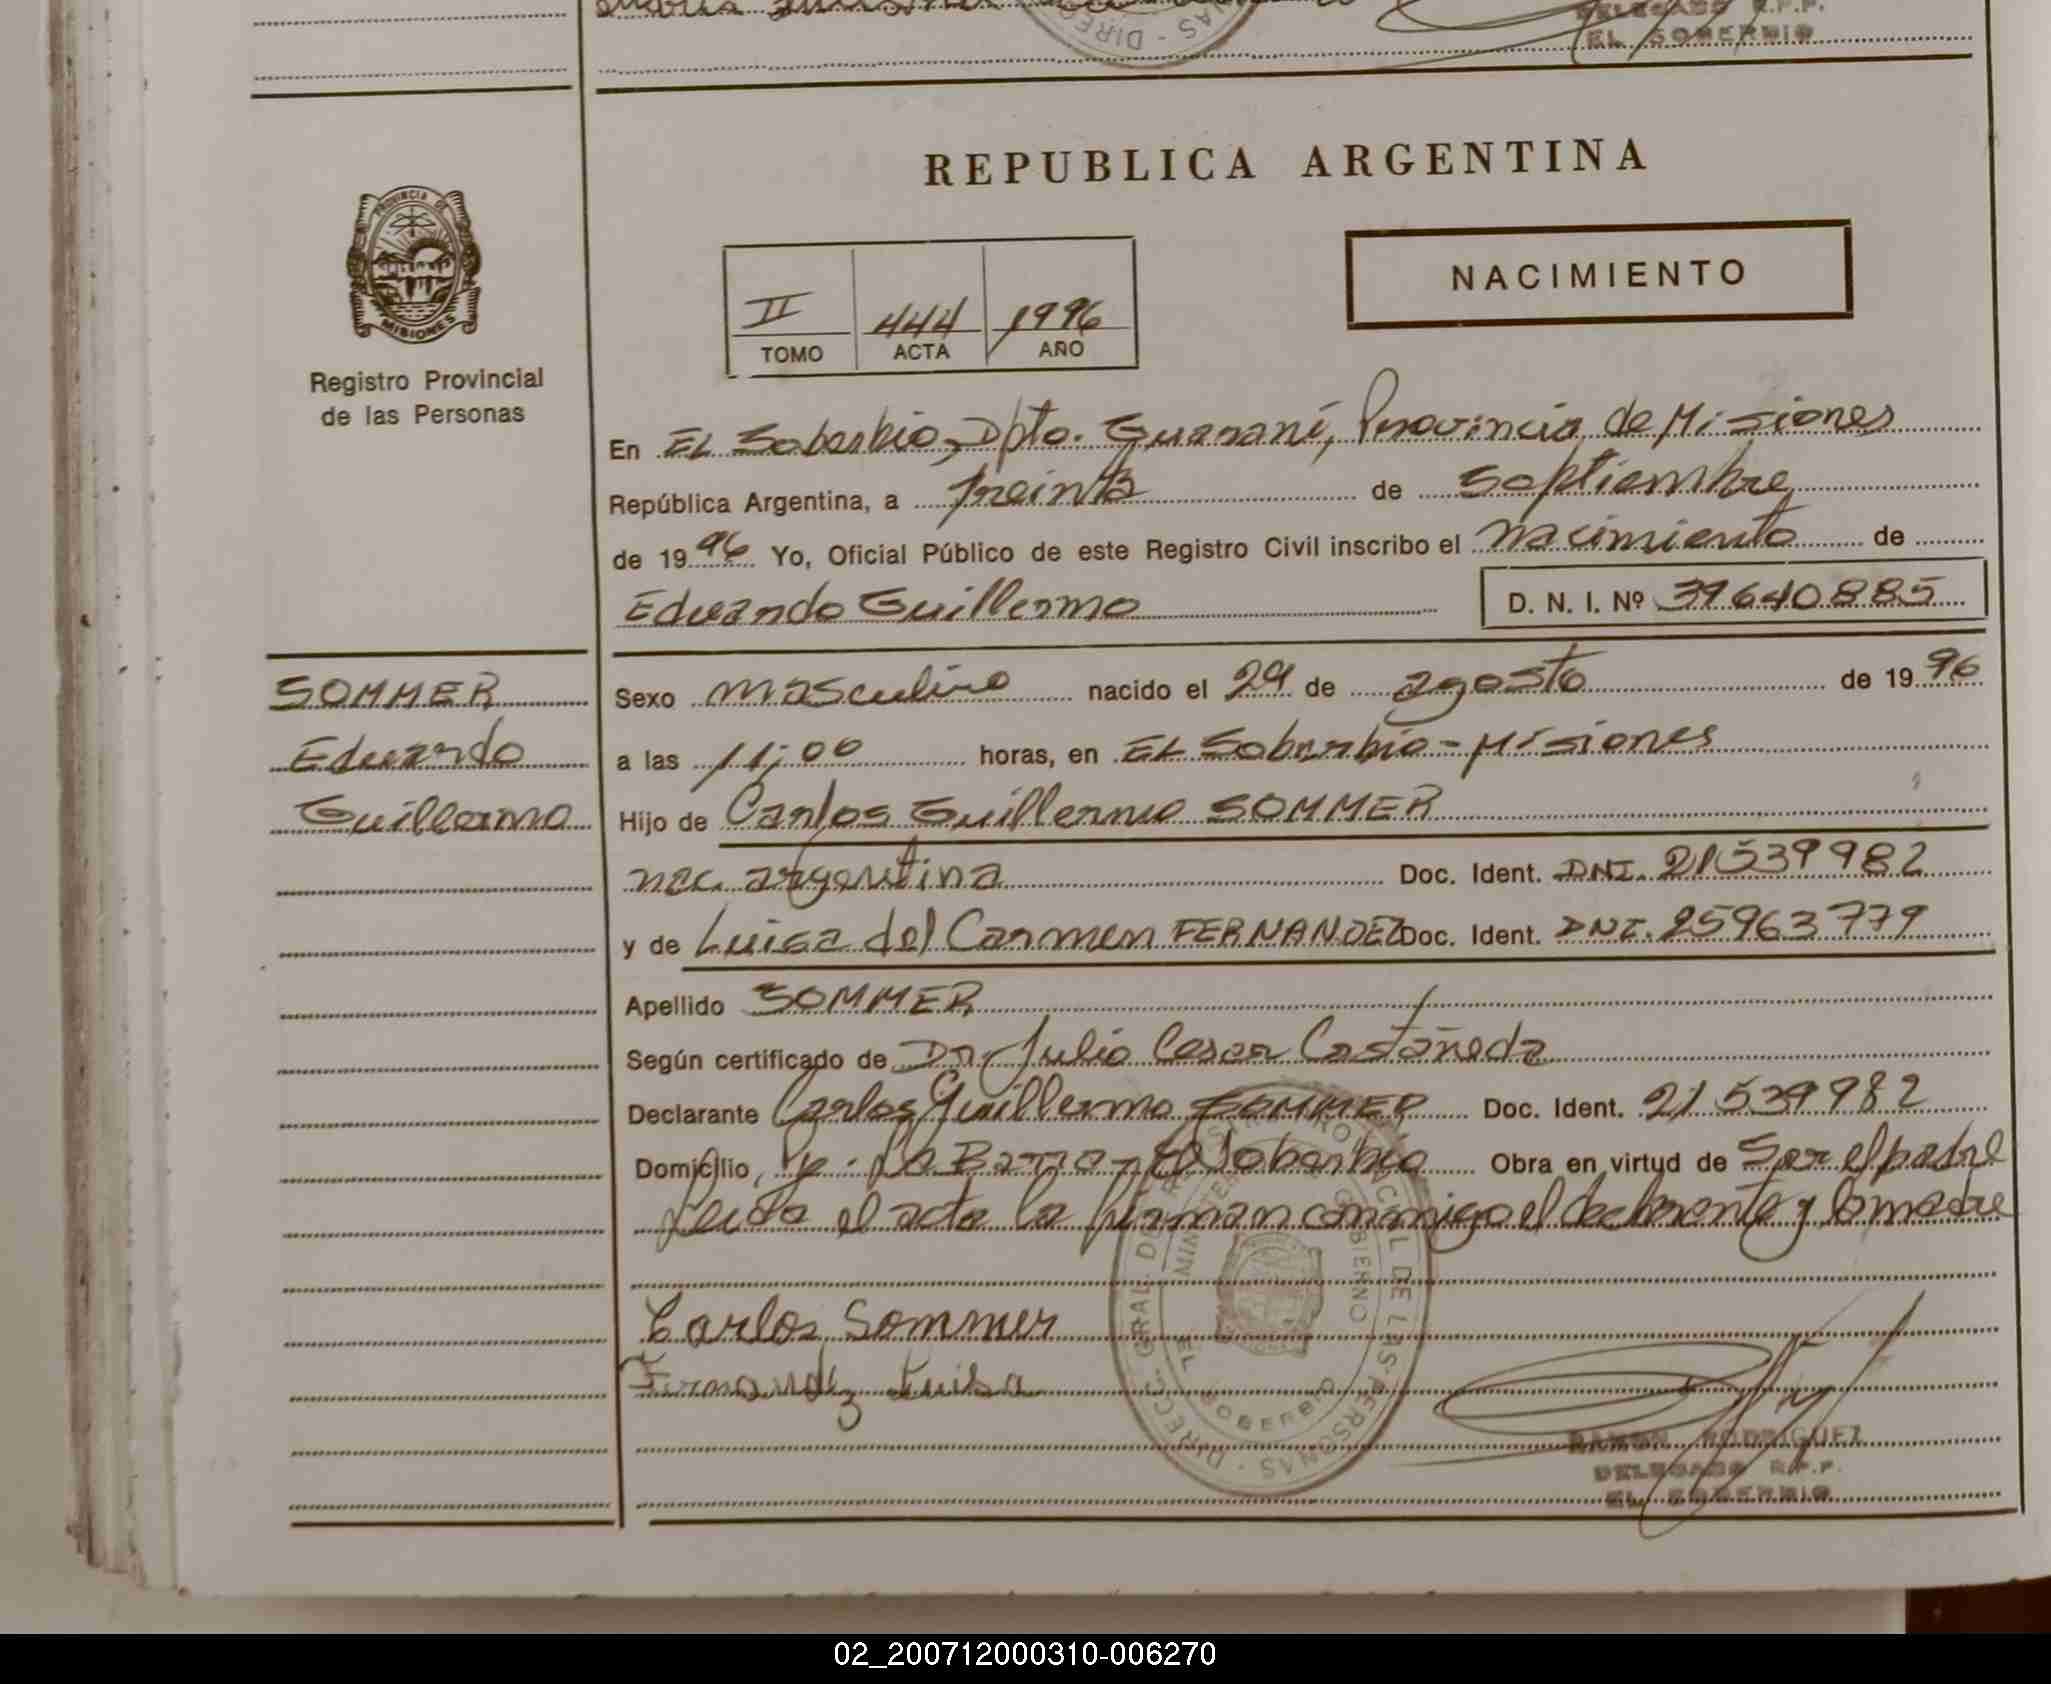 DELEGADO R.P.P.
EL SOBERBIO
REPUBLICA ARGENTINA
PROVINCIA DE
MISIONES
Registro Provincial
de las Personas
NACIMIENTO
II 444 1996
TOMO ACTA AÑO
En EL Soberbio, Dpto. Guaraní, Provincia de Misiones
República Argentina, a treinta de Septiembre
de 1996 Yo, Oficial Público de este Registro Civil inscribo el nacimiento de
Eduardo Guillermo D. N. I. Nº 39640885
SOMMER
Eduardo
Guillermo
Sexo masculino nacido el 29 de agosto de 1996
a las 11:00 horas, en EL Soberbio - Misiones
Hijo de Carlos Guillermo SOMMER
nac. argentina Doc. Ident. DNI. 21539982
y de Luisa del Carmen FERNANDEZ Doc. Ident. DNI. 25963779
Apellido SOMMER
Según certificado de Dr. Julio Cesar Castañeda
Declarante Carlos Guillermo SOMMER Doc. Ident. 21539982
Domicilio El Soberbio Obra en virtud de Ser el padre
Leida el acta la firman conmigo el declarante y la madre
Carlos Sommer
Fernandez Luisa
DIREC. GRAL. DEL REGISTRO PROVINCIAL DE LAS PERSONAS
MINISTERIO DE GOBIERNO
EL SOBERBIO
RAMON RODRIGUEZ
DELEGADO R.P.P.
EL SOBERBIO
02_200712000310-006270